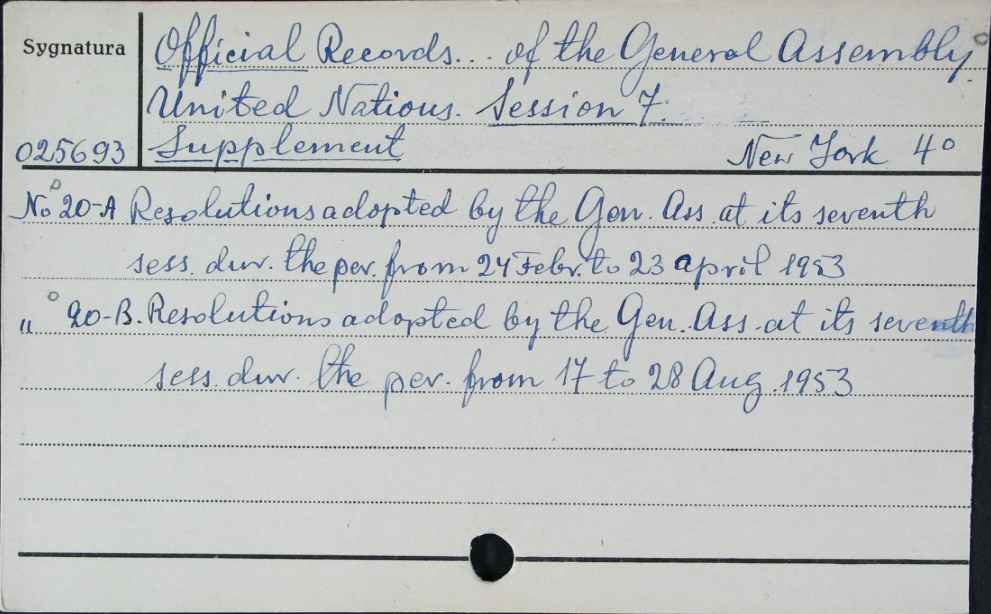 Sygnatura
Official Records... of the General Assembly
United Nations. Session 7.
025693 Supplement New York 4°
No 20-A Resolutions adopted by the Gen. Ass. at its seventh
sess. dur. the per. from 24 Febr. to 23 april 1953
" 20-B. Resolutions adopted by the Gen. Ass. at its seventh
sess. dur. the per. from 17 to 28 Aug. 1953